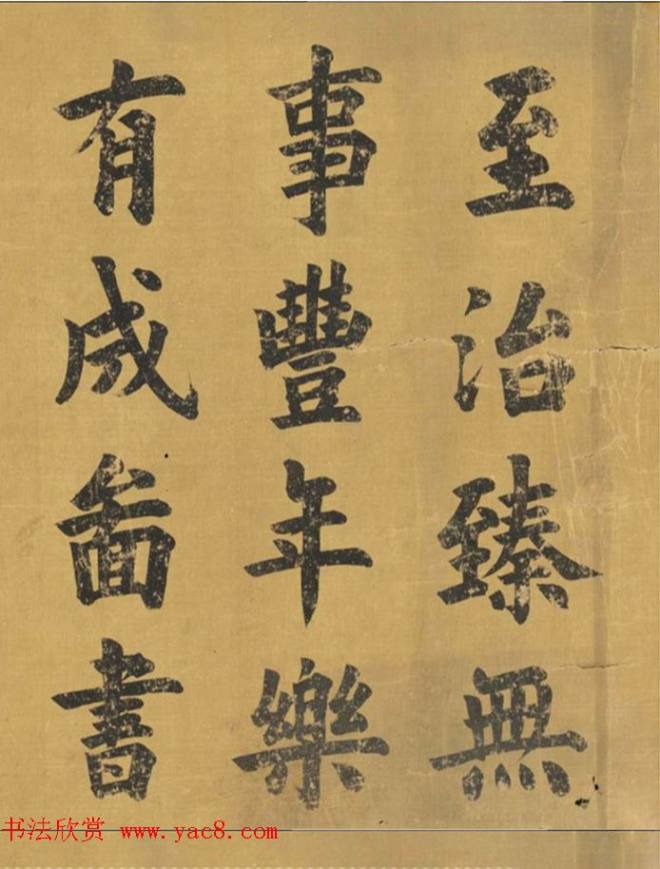 至治臻無
事豐年樂
有成啚書
书法欣赏 www.yac8.com